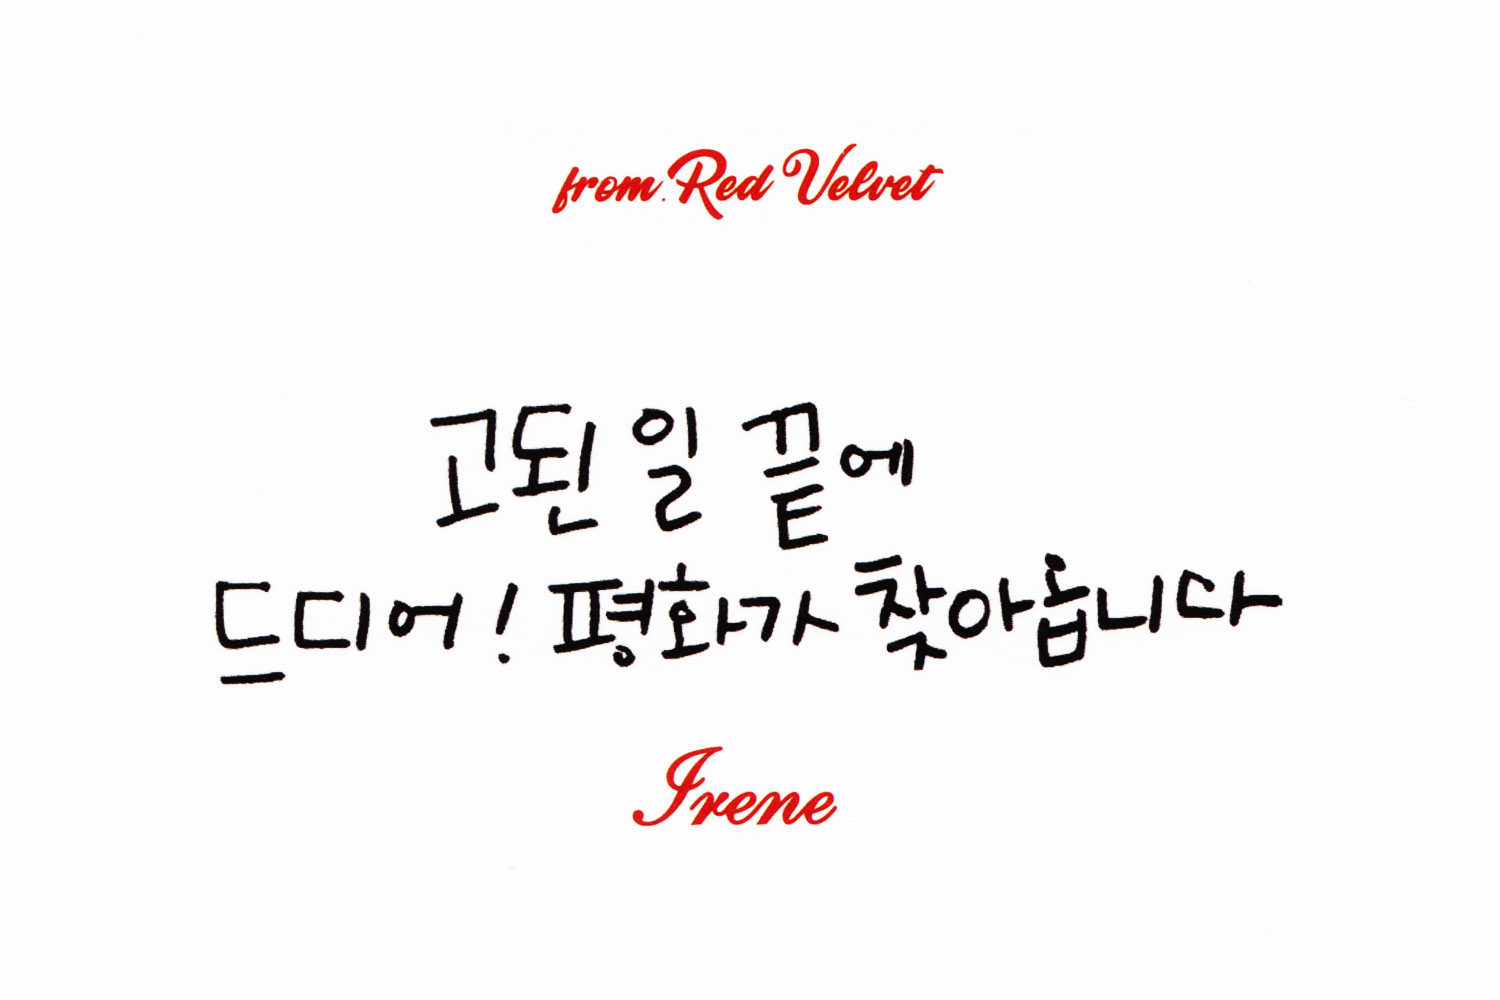 from. Red Velvet
고된 일 끝에
드디어! 평화가 찾아옵니다
Irene